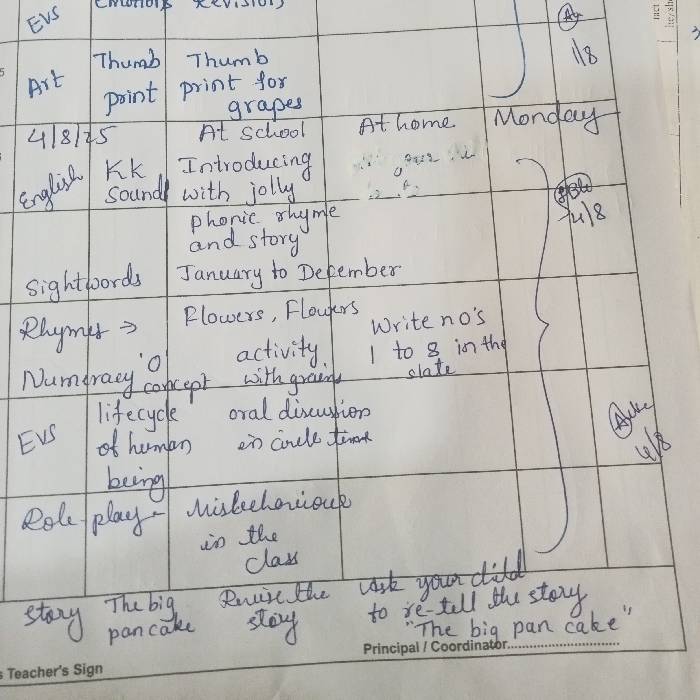 EVS Revision
Art Thumb print Thumb print for grapes
1/8
4/8/25 At School At home Monday
English Kk Sound Introducing with jolly phonic rhyme and story
4/8
Sightwords January to December
Rhymes → Flowers, Flowers
Numeracy 'O' concept activity with grains Write no's 1 to 8 in the slate
EVS lifecycle of human being oral discussion in circle time
4/8
Role-play - Misbehaviour in the class
Story The big pan cake Revise the story Ask your child to re-tell the story "The big pan cake"
Principal / Coordinator
Teacher's Sign